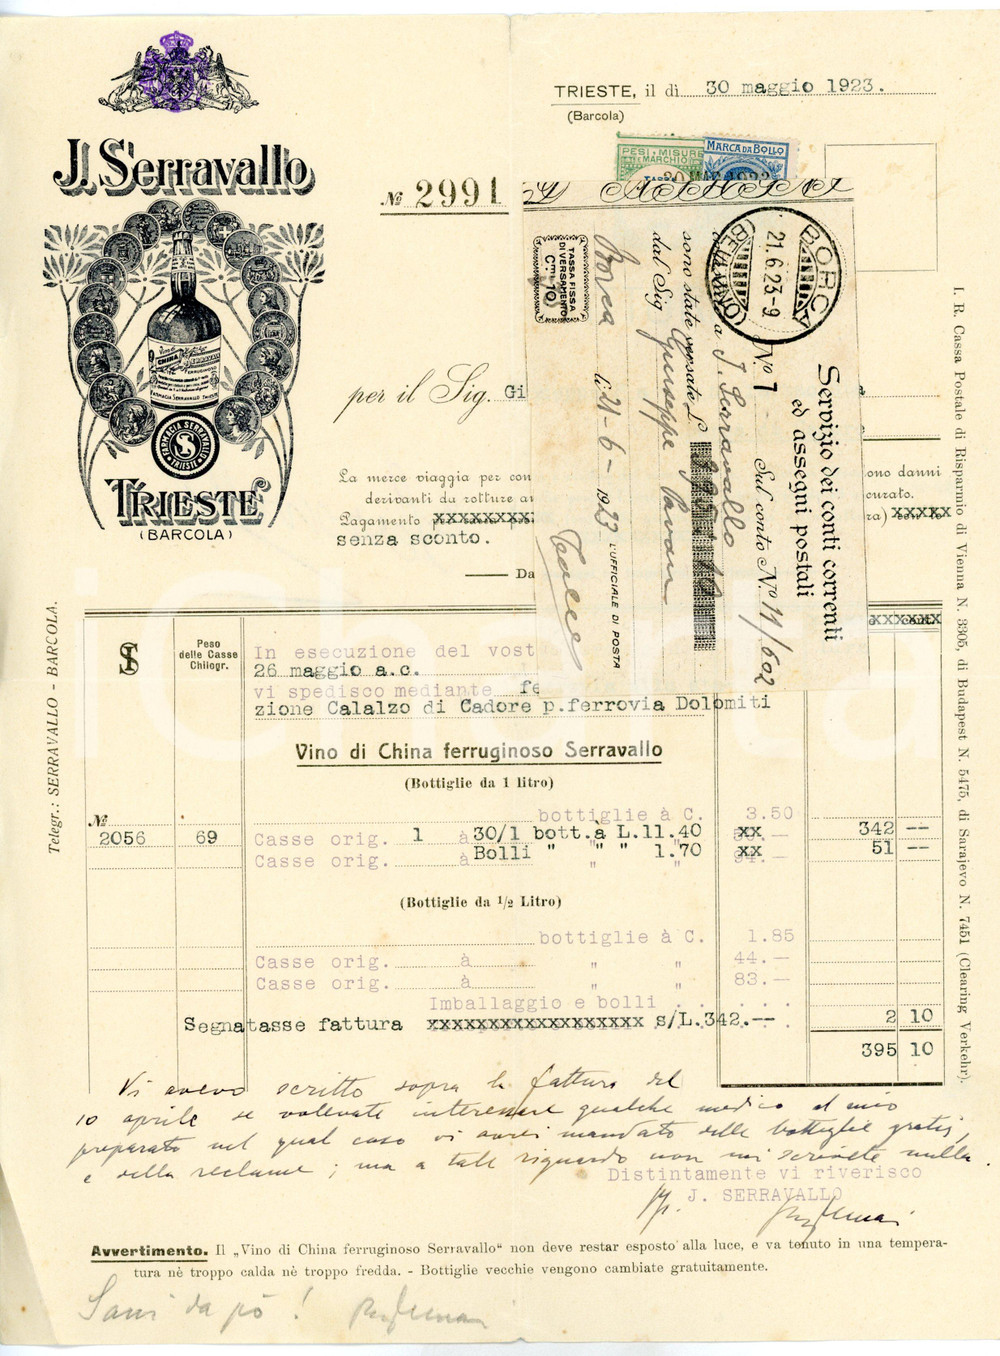 TRIESTE, il di 30 maggio 1923.
(Barcola)
J. Serravallo
PESI E MISURE
E MARCHIO
MARCA DA BOLLO
№ 2991
Vino di
CHINA
SERRAVALLO
FERRUGINOSO
FARMACIA SERRAVALLO TRIESTE
FARMACIA SERRAVALLO
TRIESTE
TRIESTE
(BARCOLA)
per il Sig. Gi
La merce viaggia per con
derivanti da rotture
Pagamento
senza sconto.
ono danni
curato.
ra) xxxxx
Da
BORCA
21.6.23-9
Servizio dei conti correnti
ed assegni postali
N.º 1 Sul conto N.º 11/602
a J. Serravallo
sono state versate L
dal Sig Giuseppe Pavan
Borca li 21-6-1923
L'UFFICIALE DI POSTA
TASSA FISSA
DI VERSAMENTO
C.mi 10
I. R. Cassa Postale di Risparmio di Vienna N. 3305, di Budapest N. 5475, di Sarajevo N. 7451 (Clearing Verkehr).
Telegr.: SERRAVALLO - BARCOLA.
Peso
delle Casse
Chilogr.
In esecuzione del vost
26 maggio a.c.
vi spedisco mediante fe
zione Calalzo di Cadore p.ferrovia Dolomiti
Vino di China ferruginoso Serravallo
(Bottiglie da 1 litro)
bottiglie à C. 3.50
№
2056 69 Casse orig. 1 à 30/1 bott.à L.11.40 xx 342 --
Casse orig. à Bolli " " " 1.70 xx 51 --
(Bottiglie da 1/2 Litro)
bottiglie à C. 1.85
Casse orig. à " " 44.—
Casse orig. à " " 83.—
Imballaggio e bolli . . . . .
Segnatasse fattura xxxxxxxxxxxxxxxxxx s/L.342.-- 2 10
395 10
Vi avevo scritto sopra la fattura del
10 aprile se volevate interessare qualche medico al mio
preparato nel qual caso vi avrei mandato delle bottiglie gratis,
e della reclame; ma a tale riguardo non mi scrivete nulla.
Distintamente vi riverisco
pp. J. SERRAVALLO
Avvertimento. Il „Vino di China ferruginoso Serravallo“ non deve restar esposto alla luce, e va tenuto in una tempera-
tura nè troppo calda nè troppo fredda. - Bottiglie vecchie vengono cambiate gratuitamente.